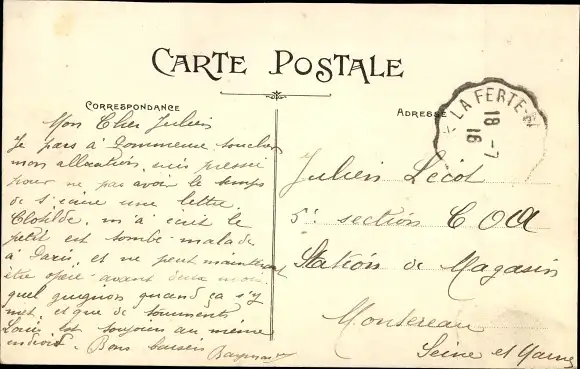 CARTE POSTALE
CORRESPONDANCE
ADRESSE
LA FERTE-
18-7
16
Mon Cher Julien
Je pars à toucher
mon allocation, suis pressé
pour ne pas avoir le temps
de une lettre
Clotilde, m'a écrit le
petit est tombé malade
à Paris, et ne peut maintenant
être opéré avant deux mois
quel guignon quand ça s'y
met, et que de tourments
Louis est toujours au même
endroit. Bons baisers
Julien Lécot
5e section C O A
Station de Magasin
Montereau
Seine et Marne